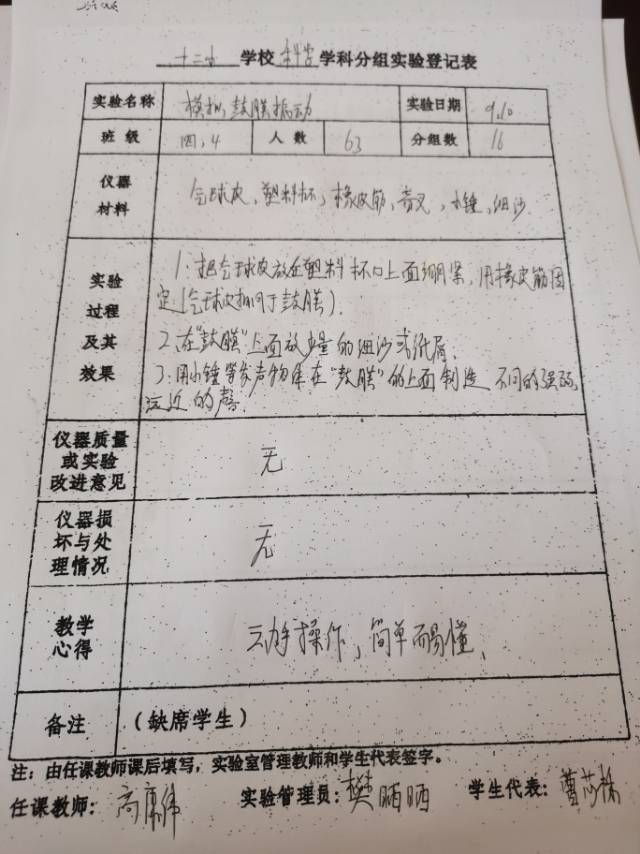 十二小 学校 科学 学科分组实验登记表
实验名称 模拟鼓膜振动 实验日期 9.10
班 级 四.4 人 数 63 分组数 16
仪器材料 气球皮、塑料杯、橡皮筋、音叉、小锤、细沙.
实验过程及其效果
1.把气球皮放在塑料杯口上面绷紧,用橡皮筋固
定(气球皮相同于鼓膜).
2.在"鼓膜"上面放少量的细沙或纸屑.
3.用小锤等发声物体在"鼓膜"的上面制造 不同的强弱,
远近的声.
仪器质量或实验改进意见 无
仪器损坏与处理情况 无
教学心得 动手操作,简单而易懂.
备注 (缺席学生)
注:由任课教师课后填写,实验室管理教师和学生代表签字。
任课教师:高康伟 实验管理员:樊晒晒 学生代表: